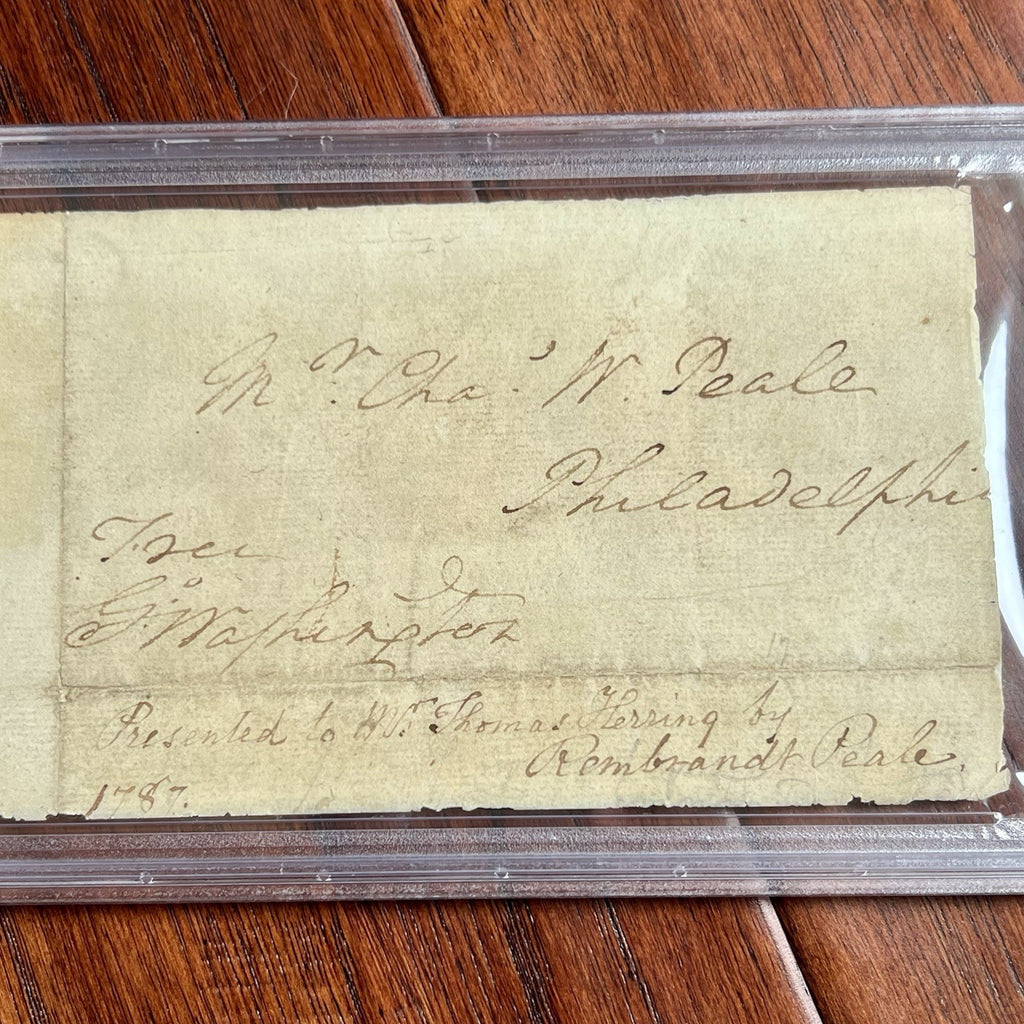 Mr. Chas. W. Peale
Philadelphi
Free
Go: Washington
Presented to Thomas Herring by
Rembrandt Peale.
1787.